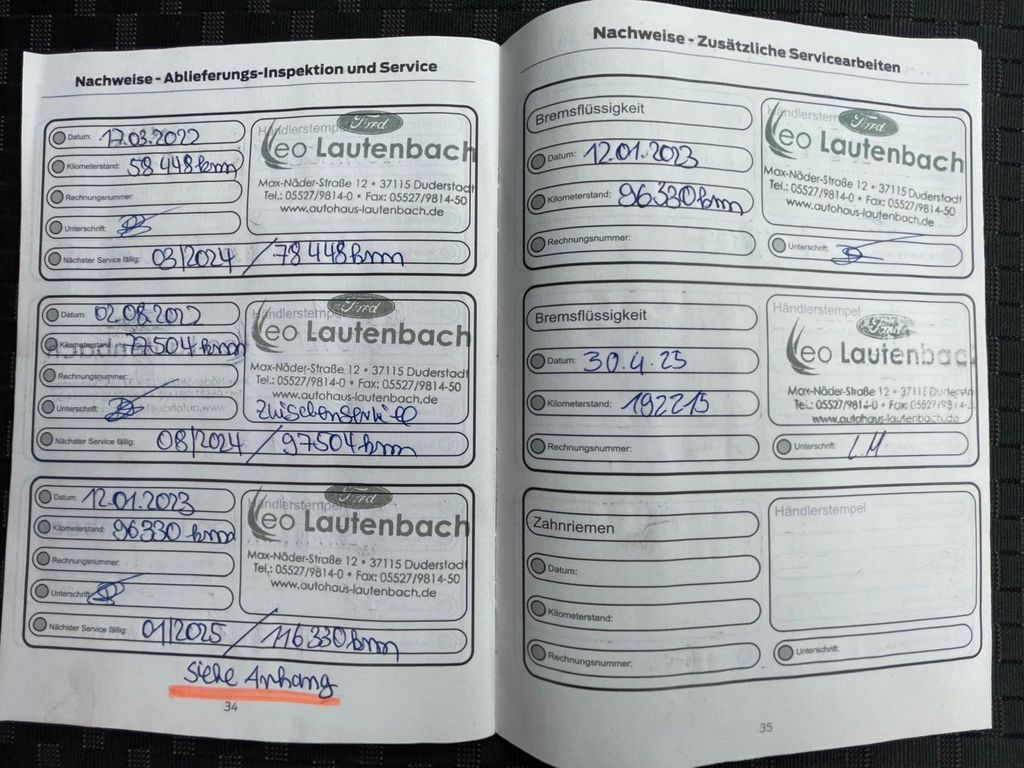 Nachweise - Ablieferungs-Inspektion und Service
Datum: 17.03.2022
Kilometerstand: 58 448 km
Rechnungsnummer:
Unterschrift:
Nächster Service fällig: 03/2024 / 78 448 km
Händlerstempel
Ford
Leo Lautenbach
Max-Näder-Straße 12 • 37115 Duderstadt
Tel.: 05527/9814-0 • Fax: 05527/9814-50
www.autohaus-lautenbach.de
Datum: 02.08.2022
Kilometerstand: 77504 km
Rechnungsnummer:
Unterschrift:
Nächster Service fällig: 08/2024 / 97504 km
Händlerstempel
Ford
Leo Lautenbach
Max-Näder-Straße 12 • 37115 Duderstadt
Tel.: 05527/9814-0 • Fax: 05527/9814-50
www.autohaus-lautenbach.de
Zwischenservice
Datum: 12.01.2023
Kilometerstand: 96330 km
Rechnungsnummer:
Unterschrift:
Nächster Service fällig: 01/2025 / 116 330 km
Händlerstempel
Ford
Leo Lautenbach
Max-Näder-Straße 12 • 37115 Duderstadt
Tel.: 05527/9814-0 • Fax: 05527/9814-50
www.autohaus-lautenbach.de
siehe Anhang
34
Nachweise - Zusätzliche Servicearbeiten
Bremsflüssigkeit
Datum: 12.01.2023
Kilometerstand: 96330 km
Rechnungsnummer:
Händlerstempel
Ford
Leo Lautenbach
Max-Näder-Straße 12 • 37115 Duderstadt
Tel.: 05527/9814-0 • Fax: 05527/9814-50
www.autohaus-lautenbach.de
Unterschrift:
Bremsflüssigkeit
Datum: 30.4.25
Kilometerstand: 192215
Rechnungsnummer:
Händlerstempel
Ford
Leo Lautenbac
Max-Näder-Straße 12 • 37115 Dudersta
Tel.: 05527/9814-0 • Fax: 05527/9814-
www.autohaus-lautenbach.de
Unterschrift: L.M
Zahnriemen
Datum:
Kilometerstand:
Rechnungsnummer:
Händlerstempel
Unterschrift:
35